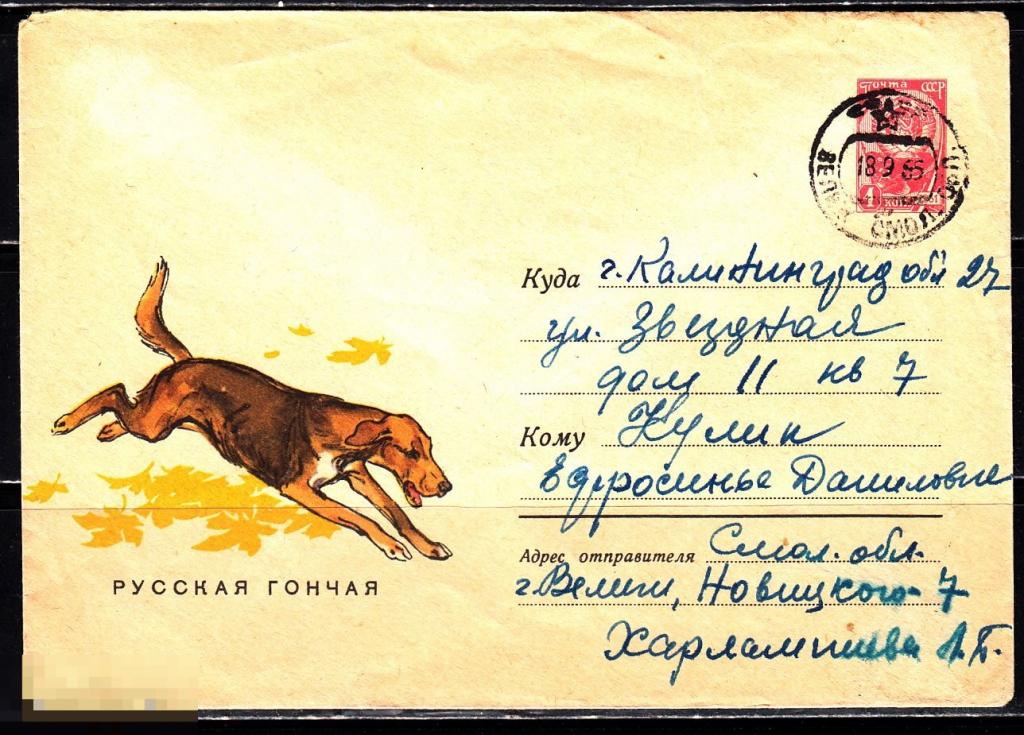 Почта СССР
ВЕЛИЖ СМОЛ. ОБЛ.
18 9 65
4
Куда г. Калининград обл 27
ул. Звездная
дом 11 кв 7
Кому Кулик
Ефросинье Даниловне
Адрес отправителя Смол. обл.
г. Велиж, Новицкого 7
Харлампиева
РУССКАЯ ГОНЧАЯ